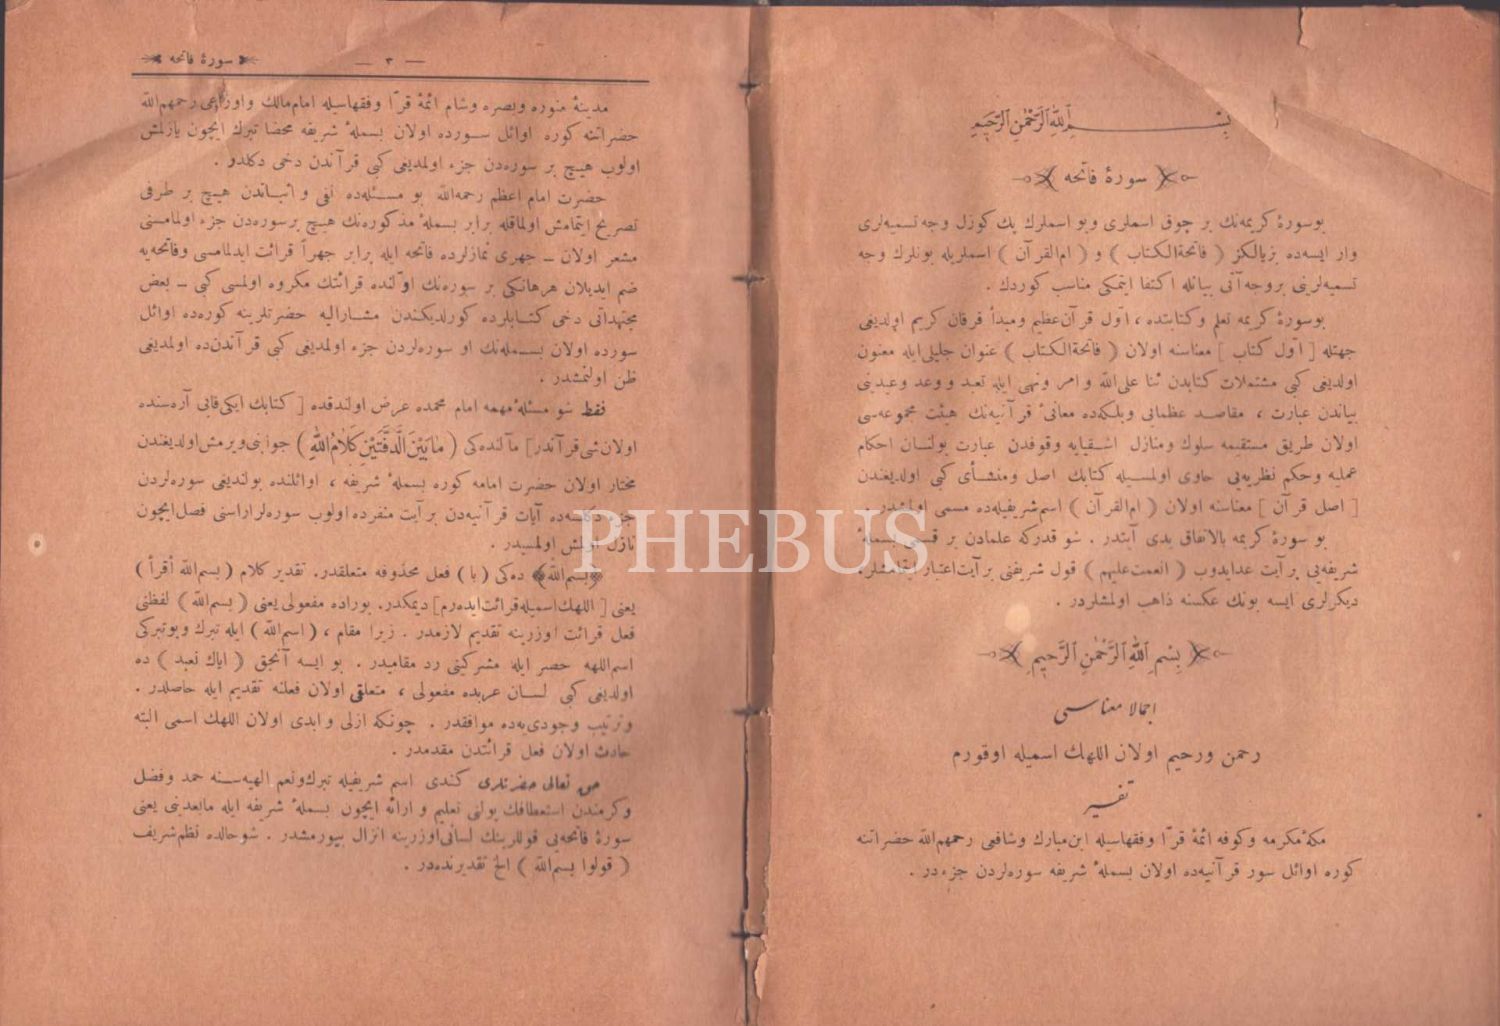 بسم الله الرحمن الرحيم
سورهٔ فاتحه
بوسورهٔ كريمه‌نك بر چوق اسملرى وبو اسملرك پك كوزل وجه تسميه‌لرى
وار ايسه‌ده بزيالكز ( فاتحة الكتاب ) و ( ام‌القرآن ) اسملريله بونلرك وجه
تسميه‌لرينى بروجه‌آتى بيانله اكتفا ايتمكى مناسب كوردك .
بوسورهٔ كريمه تعلم وكتابتده ، اوّل قرآن‌عظيم ومبدأ فرقان كريم اولديغى
جهتله [ اوّل كتاب ] معناسنه اولان ( فاتحة الكتاب ) عنوان جليلى‌ايله معنون
اولديغى كبى مشتملات كتابدن ثنا على‌الله و امر ونهى ايله تعبد و وعد وعيدينى
بياندن عبارت ، مقاصد عظمايى وبلكه‌ده معانئ قرآنيه‌نك هيئت مجموعه‌سى
اولان طريق مستقيمه سلوك ومنازل اشقيايه وقوفدن عبارت بولنان احكام
عمليه وحكم نظريه‌يى حاوى اولمسيله كتابك اصل ومنشأى كبى اولديغندن
[ اصل قرآن ] معناسنه اولان ( ام‌القرآن ) اسم‌شريفيله‌ده مسمى اولمشدر .
بو سورهٔ كريمه بالاتفاق يدى آيتدر . شو قدركه علمادن بر قسمى بسملهٔ
شريفه‌يى برآيت عدايدوب ( انعمت‌عليهم ) قول شريفنى برآيت‌اعتبار ايتمامشلر.
ديكرلرى ايسه بونك عكسنه ذاهب اولمشلردر .
بِسْمِ ٱللّٰهِ ٱلرَّحْمٰنِ ٱلرَّحِيمِ
اجمالا معناسى
رحمن ورحيم اولان اللهك اسميله اوقورم
تفسير
مكهٔ‌مكرمه وكوفه ائمهٔ قرّا وفقهاسيله ابن‌مبارك وشافعى رحمهم‌الله حضراتنه
كوره اوائل سور قرآنيه‌ده اولان بسملهٔ شريفه سوره‌لردن جزءدر .
— ٣ — سورهٔ فاتحه
مدينهٔ منوره وبصره وشام ائمهٔ قرّا وفقهاسيله امام‌مالك واوزاعى رحمهم‌الله
حضراتنه كوره اوائل سورده اولان بسملهٔ شريفه محضا تبرك ايچون يازلمش
اولوب هيچ بر سوره‌دن جزء اولمديغى كبى قرآندن دخى دكلدو .
حضرت امام اعظم رحمه‌الله بو مسئله‌ده نفى و اثباتدن هيچ بر طرفى
تصريح ايتمامش اولماقله برابر بسملهٔ مذكوره‌نك هيچ برسوره‌دن جزء اولمامسنى
مشعر اولان ــ جهرى نمازلرده فاتحه ايله برابر جهراً قرائت ايدلمامسى وفاتحه‌يه
ضم ايديلان هرهانكى بر سوره‌نك اوّلنده قرائتك مكروه اولمسى كبى ــ بعض
مجتهداتى دخى كتابلرده كورلديكندن مشاراليه حضرتلرينه كوره‌ده اوائل
سورده اولان بسمله‌نك او سوره‌لردن جزء اولمديغى كبى قرآندن‌ده اولمديغى
ظن اولنمشدر .
فقط شو مسئلهٔ مهمه امام محمده عرض اولندقده [ كتابك ايكى‌قابى آره‌سنده
اولان‌شى‌قرآندر] مآلنده‌كى ( مَا بَيْنَ الدَّفَّتَيْنِ كَلَامُ اللّٰهِ ) جوابنى‌ويرمش‌اولديغندن
مختار اولان حضرت امامه كوره بسملهٔ شريفه ، اوائلنده بولنديغى سوره‌لردن
جزء دكلسه‌ده آيات قرآنيه‌دن برآيت منفرده اولوب سوره‌لراراسنى فصل‌ايچون
نازل اولمش اولمسيدر .
﴿بسم‌الله﴾ ده‌كى (با) فعل محذوفه متعلقدر. تقدير كلام ( بسم‌الله أقرأ )
يعنى [ اللهك‌اسميله‌قرائت‌ايده‌رم] ديمكدر. بوراده مفعولى يعنى ( بسم‌الله ) لفظنى
فعل قرائت اوزرينه تقديم لازمدر . زيرا مقام ، ( اسم‌الله ) ايله تبرك وبوتبركى
اسم‌اللهه حصر ايله مشركينى رد مقاميدر . بو ايسه آنجق ( اياك نعبد ) ده
اولديغى كبى لسان عربده مفعولى ، متعلقى اولان فعلنه تقديم ايله حاصلدر .
وترتيب وجودى‌يه‌ده موافقدر . چونكه ازلى و ابدى اولان اللهك اسمى البته
حادث اولان فعل قرائتدن مقدمدر .
حق تعالى حضرتلرى كندى اسم شريفيله تبرك‌ونعم الهيه‌سنه حمد وفضل
وكرمندن استعطافك يولنى تعليم و ارائه ايچون بسملهٔ شريفه ايله مابعدينى يعنى
سورهٔ فاتحه‌يى قوللرينك لسانى‌اوزرينه انزال بيورمشدر . شوحالده نظم‌شريف
( قولوا بسم‌الله ) الخ تقديرنده‌در .
PHEBUS